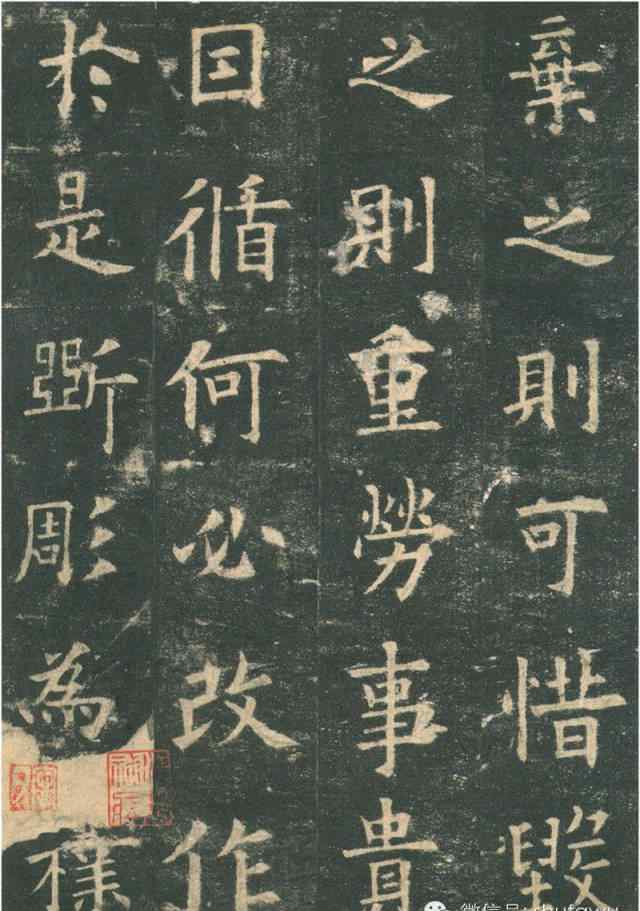 棄之則可惜毀
之則重勞事貴
因循何必改作
於是斲彫為樸
微信号:shufawu